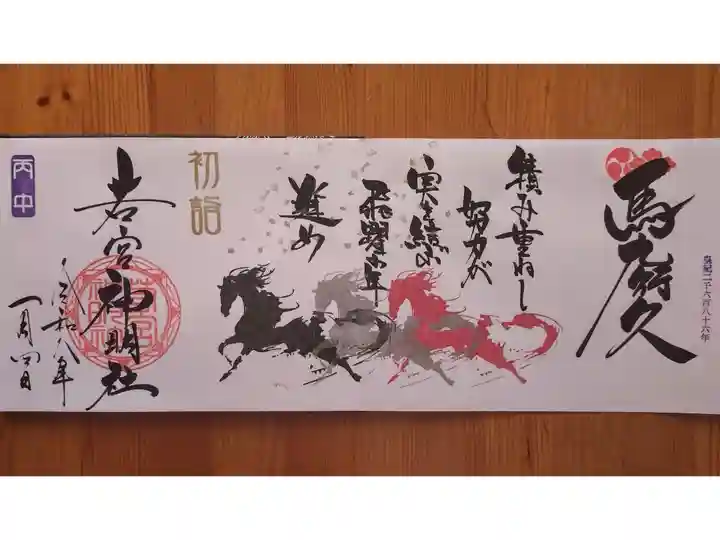 皇紀二千六百八十六年
馬九行久
積み重ねし
努力が
実を結ぶ
飛躍の年
進め
初詣
若宮神明社
令和八年
一月四日
丙午